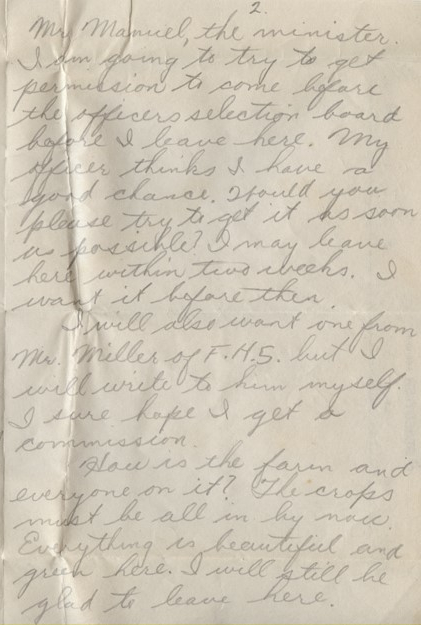 2.
Mr. Manuel, the minister.
I am going to try to get
permission to come before
the officers selection board
before I leave here. My
officer thinks I have a
good chance. Would you
please try to get it as soon
as possible? I may leave
here within two weeks. I
want it before then.
I will also want one from
Mr. Miller of F.H.S. but I
will write to him myself.
I sure hope I get a
commission.
How is the farm and
everyone on it? The crops
must be all in by now.
Everything is beautiful and
green here. I will still be
glad to leave here.